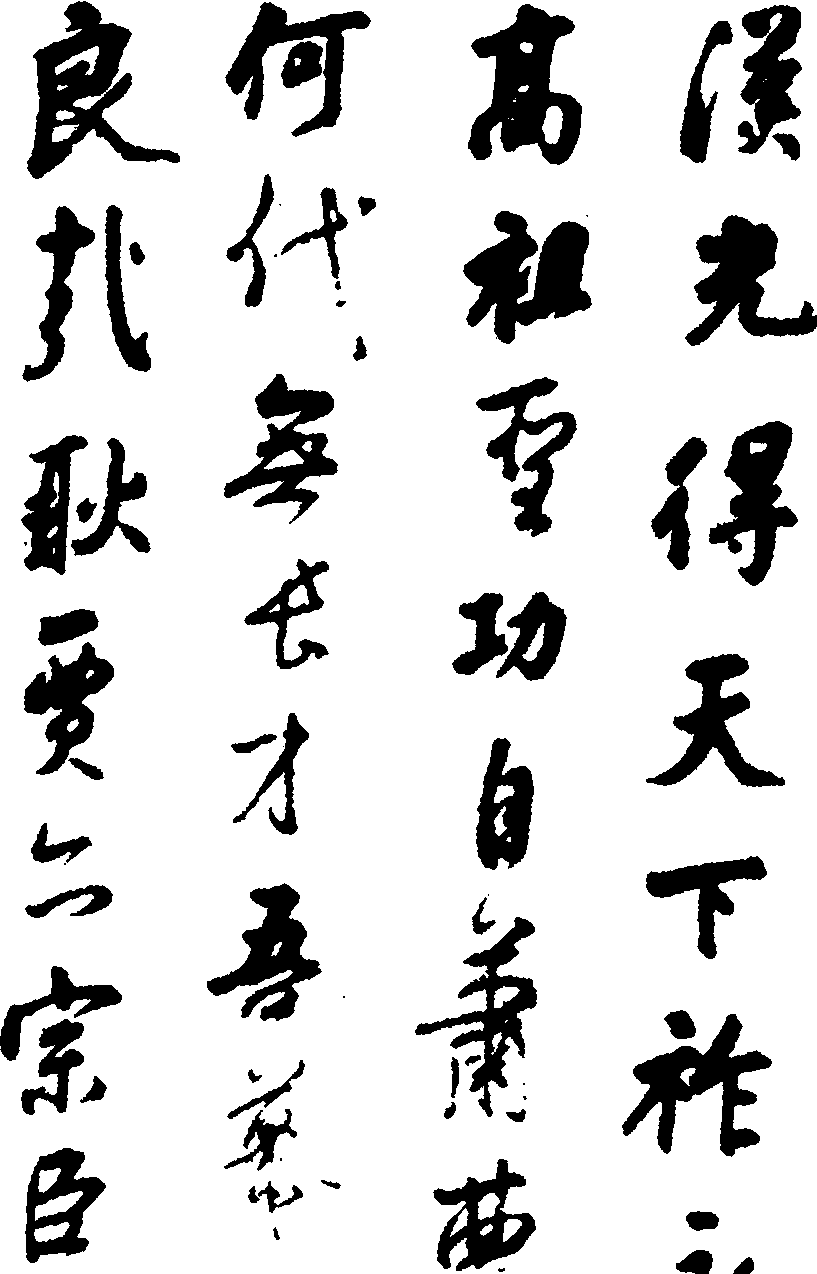 漢光得天下祚永
高祖聖功自蕭曹
何代無長才吾慕
良哉耿賈亦宗臣